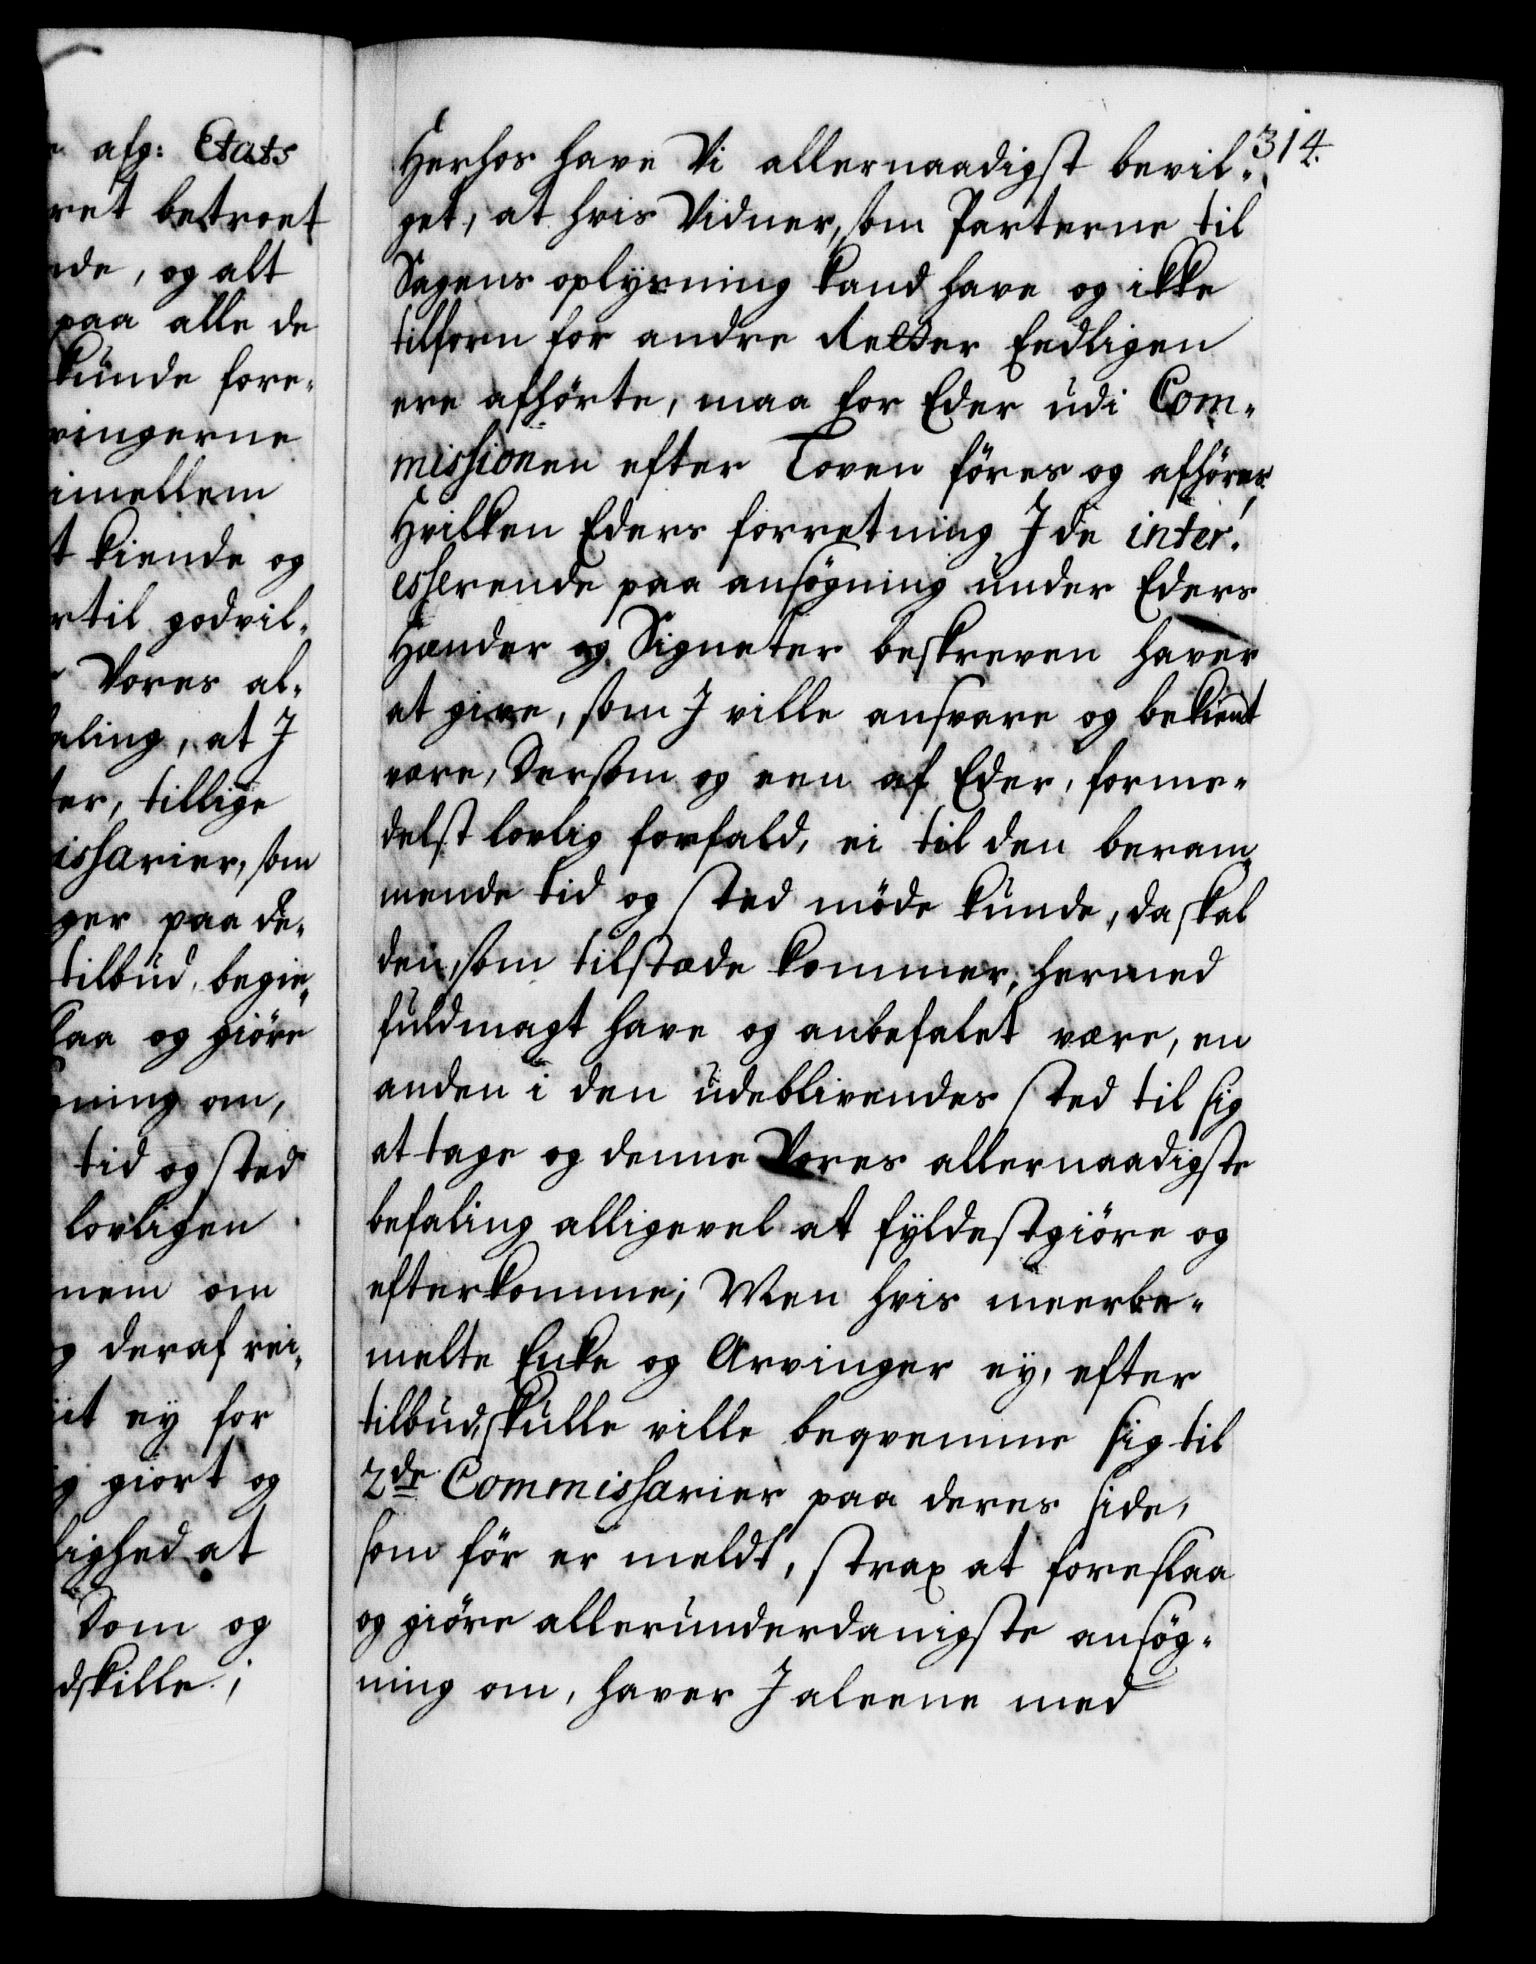 afg: Etats
ret betroet
de, og alt
paa alle de
kunde fore-
vingerne
imellem
t kiende og
til godvil-
Vores al-
aling, at I
ter, tillige
issarier, som
ger paa de-
tilbud, begie-
laa og giöre
ning om,
tid og sted
lovligen
nem om
deraf rei-
it ey for
giort og
lighed at
Dom og
dskille;
314.
Herhos have Vi allernaadigst bevil-
get, at hvis Vidner, som Parterne til
Sagens oplysning kand have og ikke
tilforn for andre Retter Eedligen
ere afhörte, maa for Eder udi Com-
missionen efter Loven föres og afhöres,
Hvilken Eders forretning I de inter-
esserende paa ansögning under Eders
Hænder og Signeter beskreven haver
at give, som I ville ansvare og bekient
være, Dersom og een af Eder, forme-
delst lovlig forfald, ei til den beram-
mende tid og sted möde kunde, da skal
den, som tilstæde kommer, hermed
fuldmagt have og anbefalet være, en
anden i den udeblivendes sted til sig
at tage og denne Vores allernaadigste
befaling alligevel at fyldestgiöre og
efterkomme; Men hvis meerbe-
melte Enke og Arvinger ey, efter
tilbud, skulle ville beqvemme sig til
2de Commissarier paa deres side,
som för er meldt, strax at foreslaa
og giöre allerunderdanigste ansög-
ning om, haver I aleene med